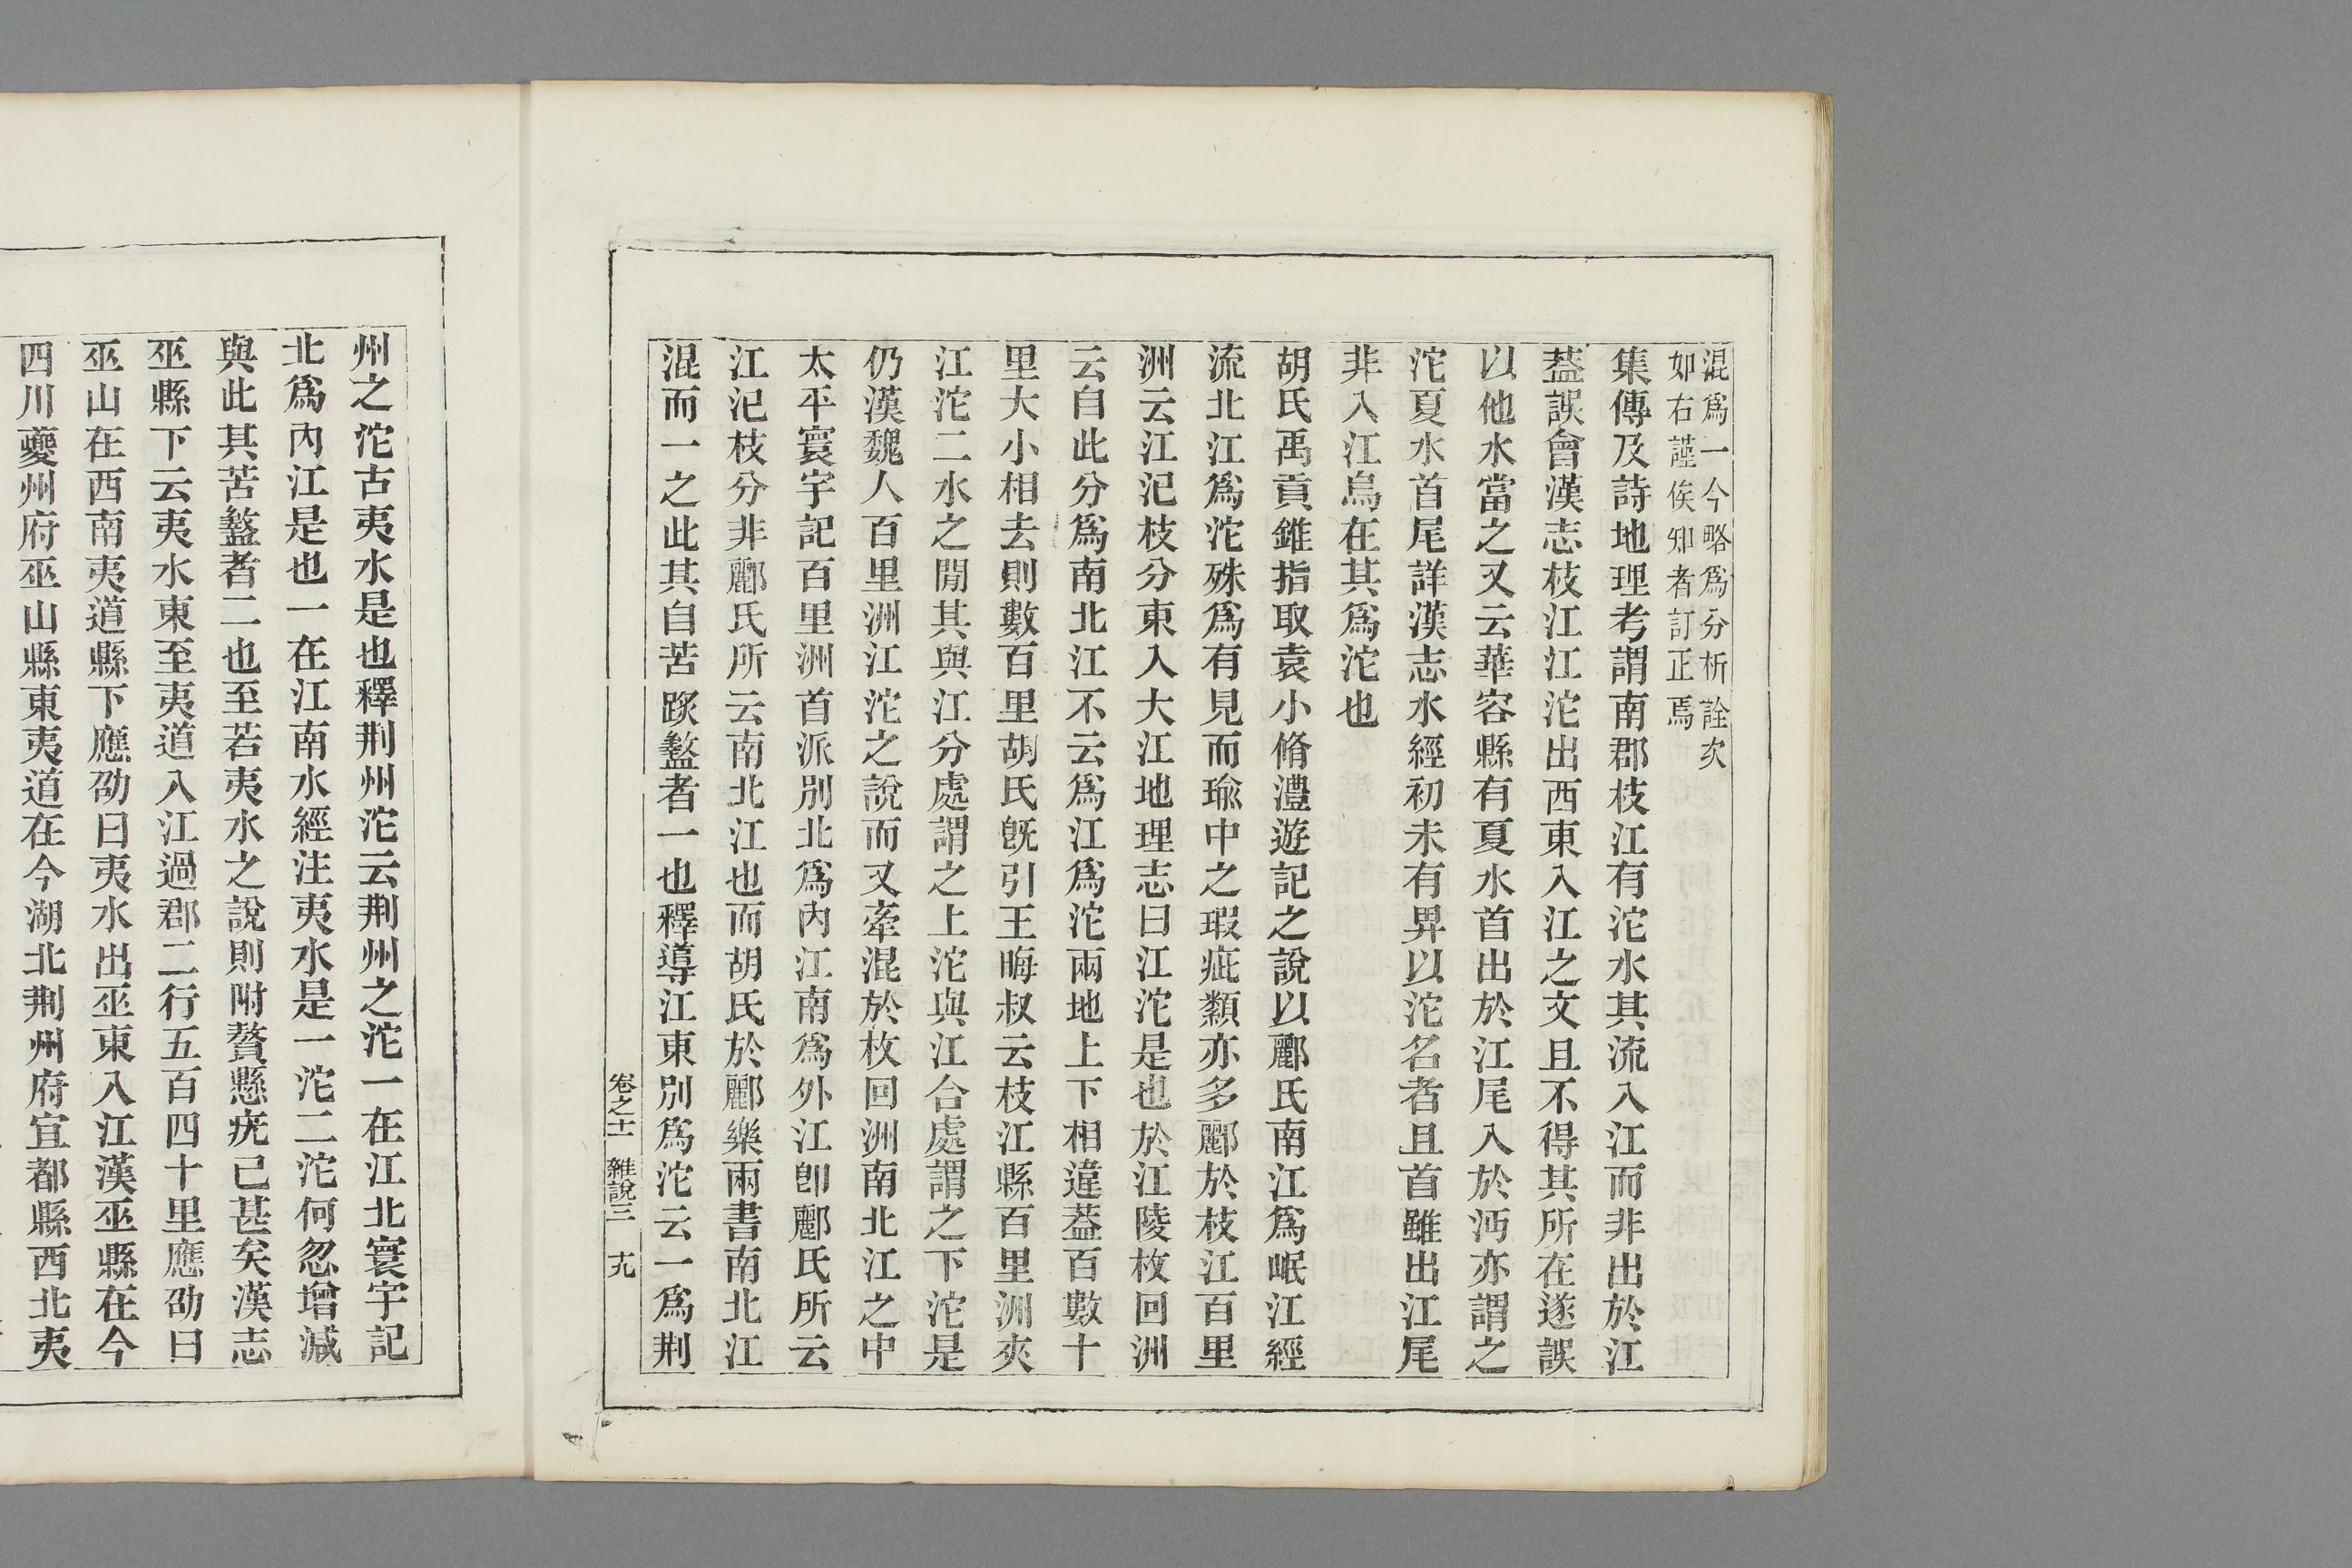 混爲一今略爲分析詮次
如右謹俟知者訂正焉
集傳及詩地理考謂南郡枝江有沱水其流入江而非出於江
葢誤會漢志枝江江沱出西東入江之文且不得其所在遂誤
以他水當之又云華容縣有夏水首出於江尾入於沔亦謂之
沱夏水首尾詳漢志水經初未有畀以沱名者且首雖出江尾
非入江烏在其爲沱也
胡氏禹貢錐指取袁小脩澧遊記之說以酈氏南江爲岷江經
流北江爲沱殊爲有見而瑜中之瑕疵纇亦多酈於枝江百里
洲云江汜枝分東入大江地理志曰江沱是也於江陵枚回洲
云自此分爲南北江不云爲江爲沱兩地上下相違葢百數十
里大小相去則數百里胡氏旣引王晦叔云枝江縣百里洲夾
江沱二水之閒其與江分處謂之上沱與江合處謂之下沱是
仍漢魏人百里洲江沱之說而又牽混於枚回洲南北江之中
太平寰宇記百里洲首派別北爲內江南爲外江卽酈氏所云
江汜枝分非酈氏所云南北江也而胡氏於酈樂兩書南北江
混而一之此其自苦蹊盭者一也釋導江東別爲沱云一爲荆
卷之十一 雜說三 十九
州之沱古夷水是也釋荆州沱云荆州之沱一在江北寰宇記
北爲內江是也一在江南水經注夷水是一沱二沱何忽增減
與此其苦盭者二也至若夷水之說則附贅懸疣已甚矣漢志
巫縣下云夷水東至夷道入江過郡二行五百四十里應劭曰
巫山在西南夷道縣下應劭曰夷水出巫東入江漢巫縣在今
四川夔州府巫山縣東夷道在今湖北荆州府宜都縣西北夷